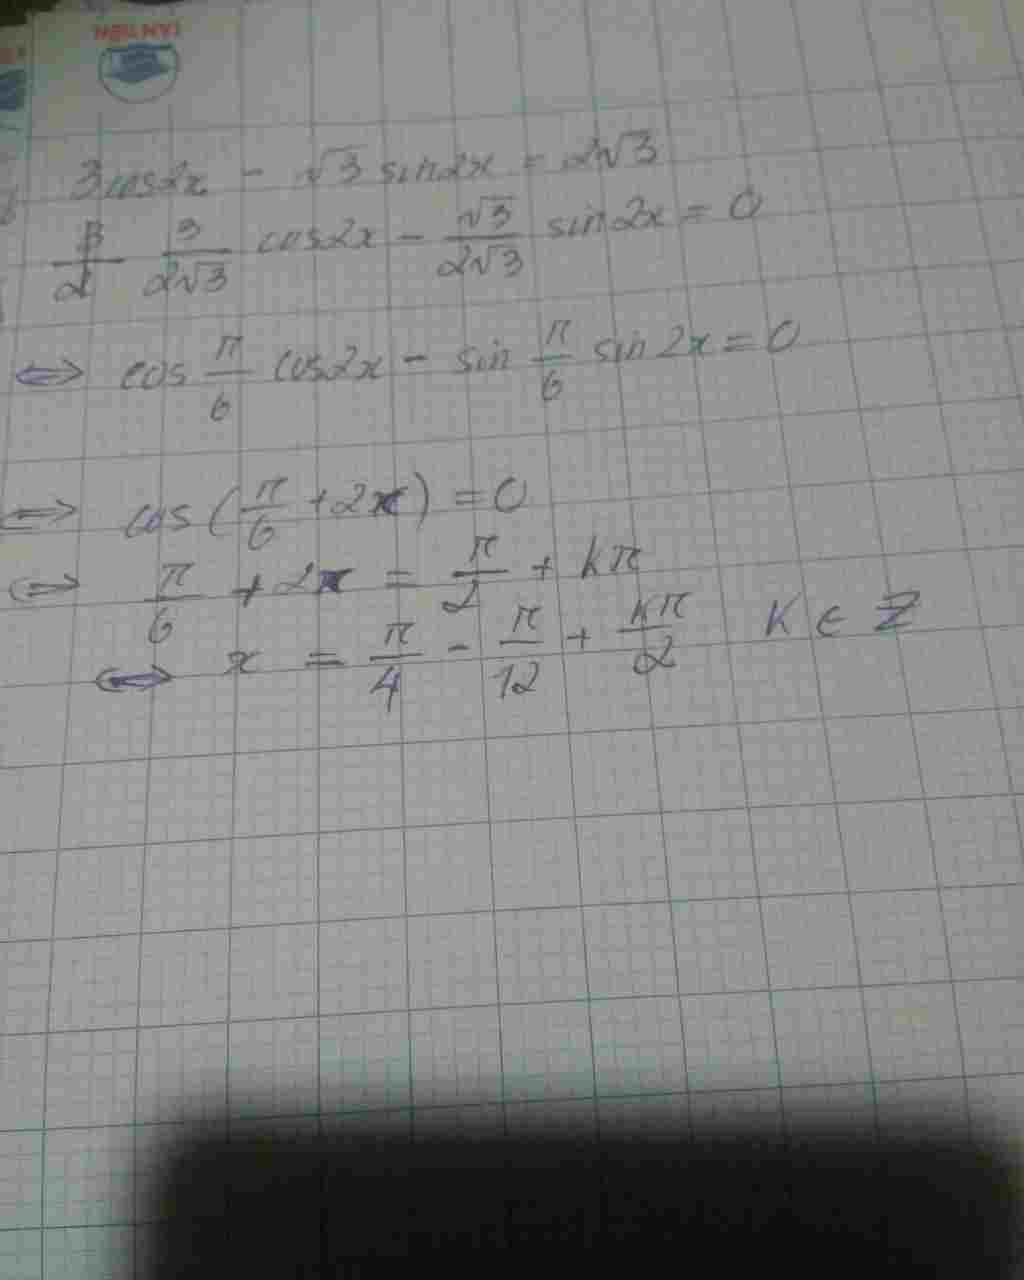 TÂN TIẾN
3cos2x - √3 sin2x = 2√3
3/(2√3) cos2x - √3/(2√3) sin2x = 0
⇔ cos π/6 cos2x - sin π/6 sin2x = 0
⇔ cos(π/6 + 2x) = 0
⇔ π/6 + 2x = π/2 + kπ
⇔ x = π/4 - π/12 + kπ/2 K ∈ Z